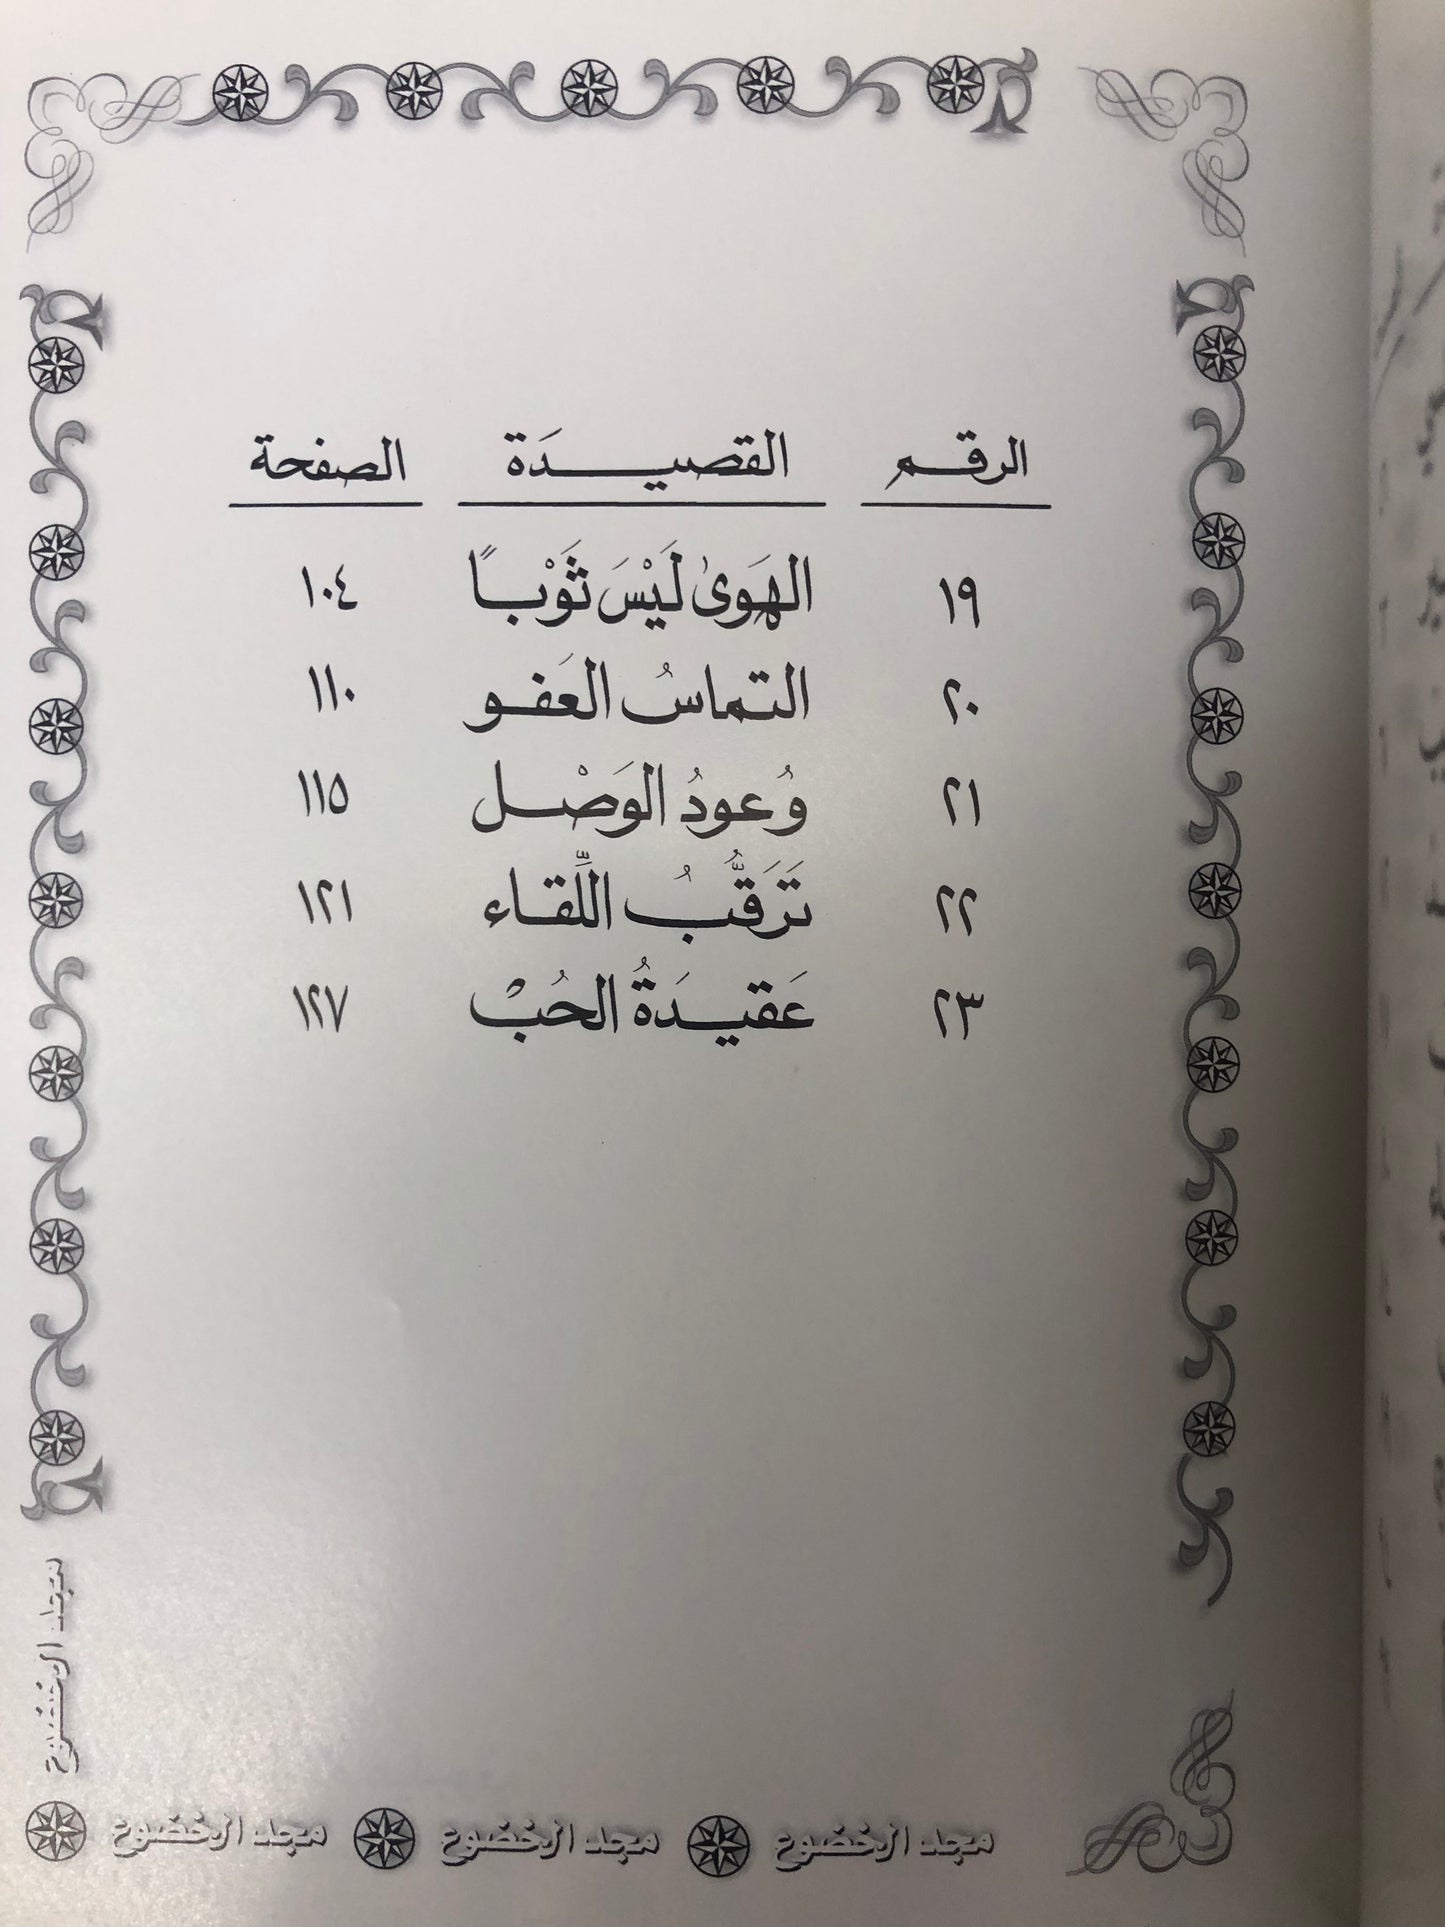 الرقـم القصيـــدَة الصفحة
١٩ الهَوىٰ لَيْسَ ثَوْبـاً ١٠٤
٢٠ التماسُ العَفـو ١١٠
٢١ وُعودُ الوَصْـل ١١٥
٢٢ تَرَقُّبُ اللِّقـاء ١٢١
٢٣ عَقيـدَةُ الحُبْ ١٢٧
مجد الخضوع
مجد الخضوع مجد الخضوع مجد الخضوع